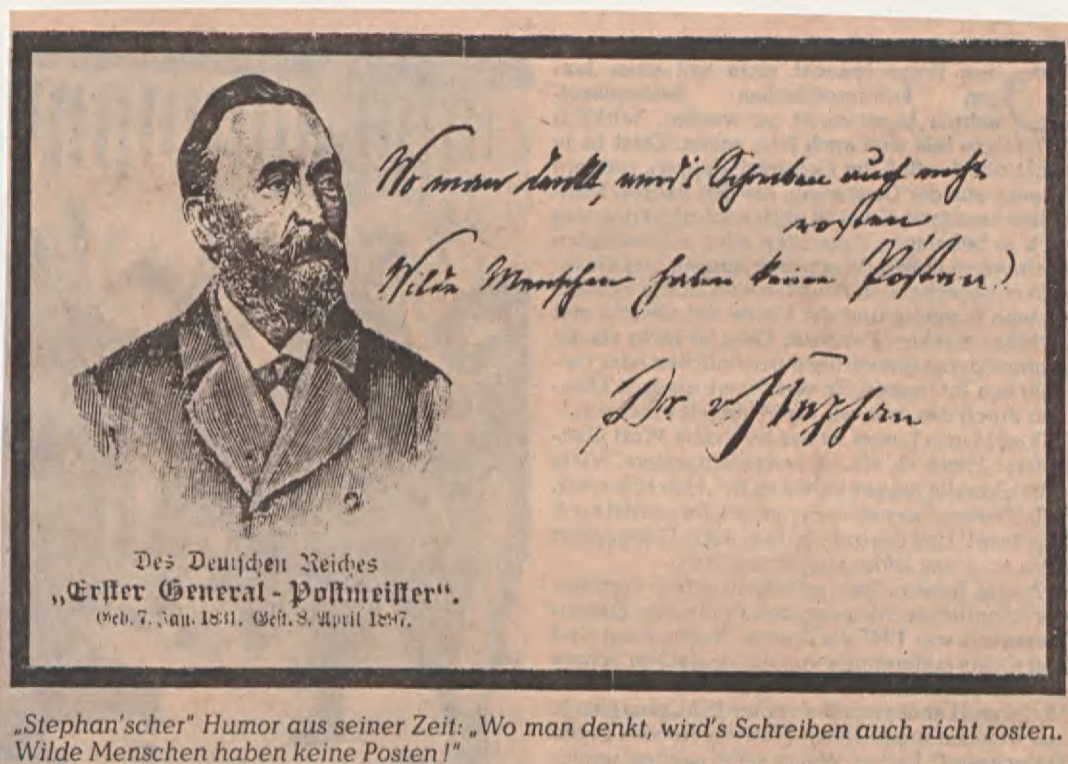 Wo man denkt, wird's Schreiben auch nicht
rosten,
Wilde Menschen haben keine Posten!
Dr. v Stephan
Des Deutschen Reiches
„Erster General-Postmeister“.
Geb. 7. Jan. 1831. Gest. 8. April 1897.
„Stephan'scher" Humor aus seiner Zeit: „Wo man denkt, wird's Schreiben auch nicht rosten.
Wilde Menschen haben keine Posten!"